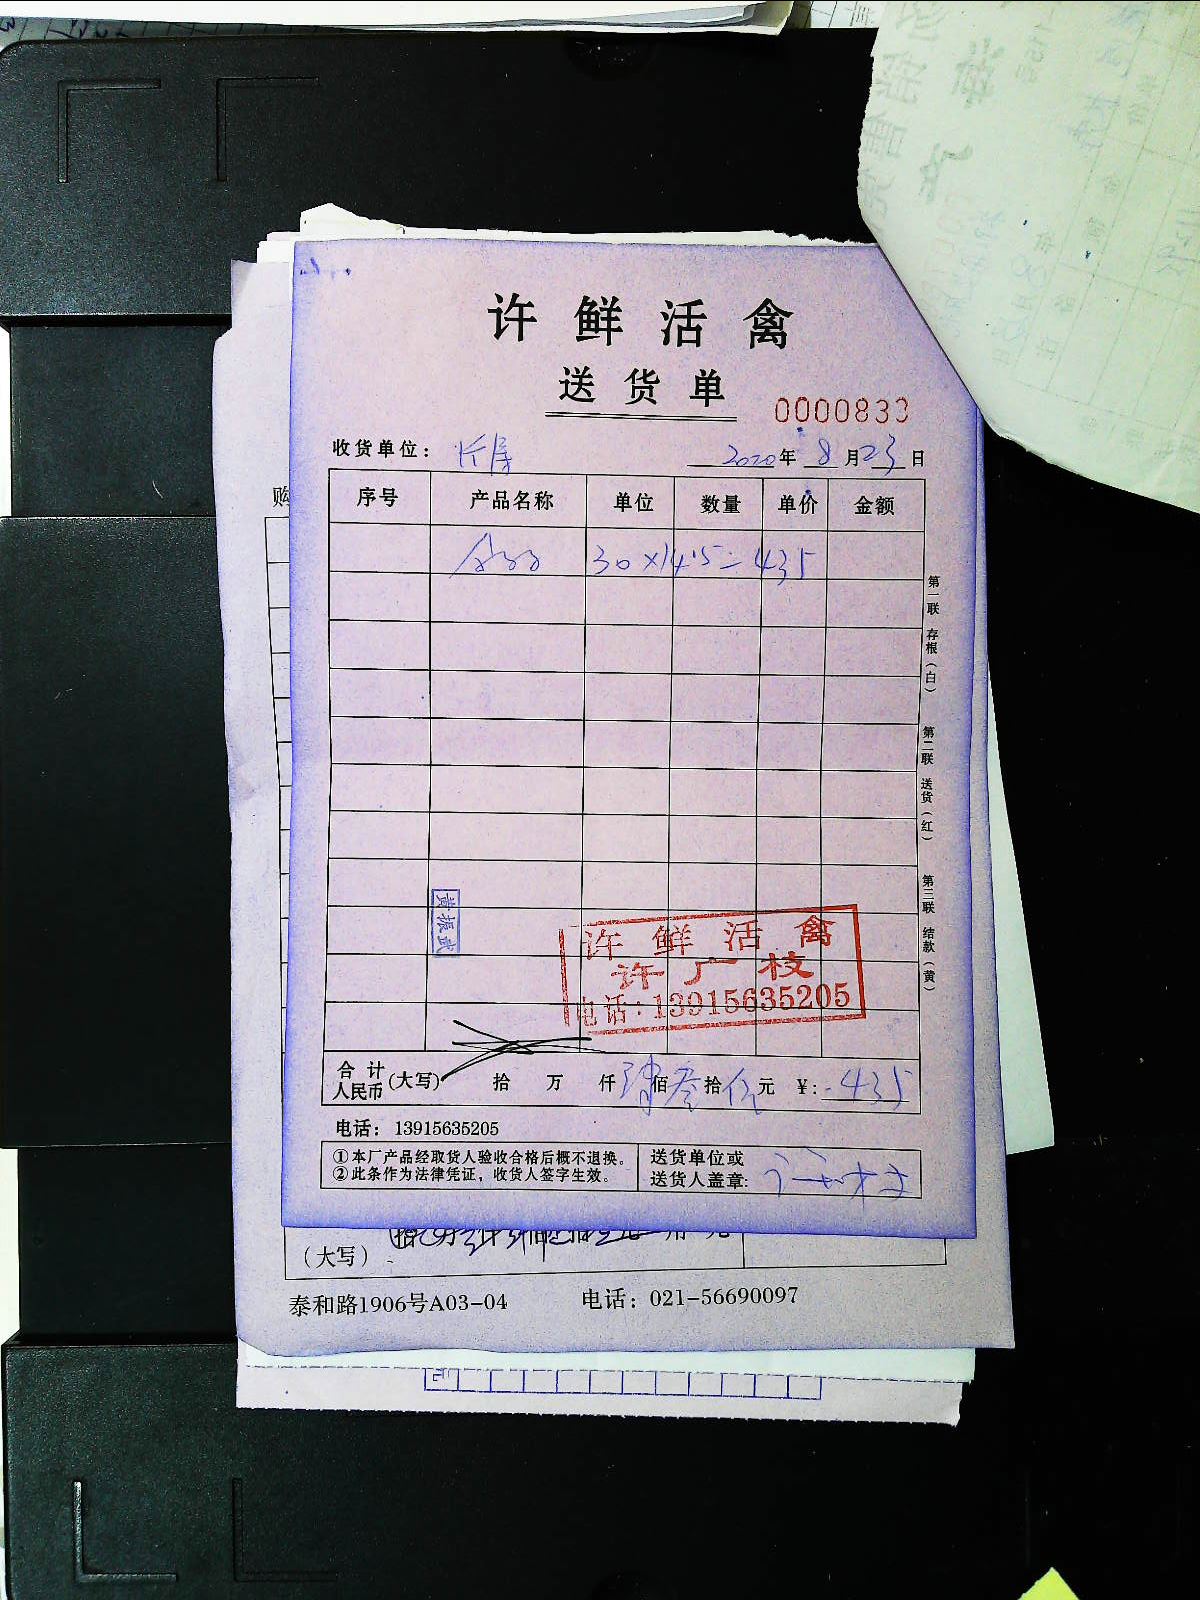 许鲜活禽
送货单
0000833
收货单位：
2020年 8月23日
序号 产品名称 单位 数量 单价 金额
30×14.5=435
第一联 存根（白）
第二联 送货（红）
第三联 结款（黄）
黄振武
许鲜活禽
许广枝
电话：13915635205
合计人民币(大写) 拾 万 仟 肆佰叁拾伍元 ¥：435
电话：13915635205
①本厂产品经取货人验收合格后概不退换。
②此条作为法律凭证，收货人签字生效。
送货单位或
送货人盖章:
购
（大写）
泰和路1906号A03-04 电话：021-56690097